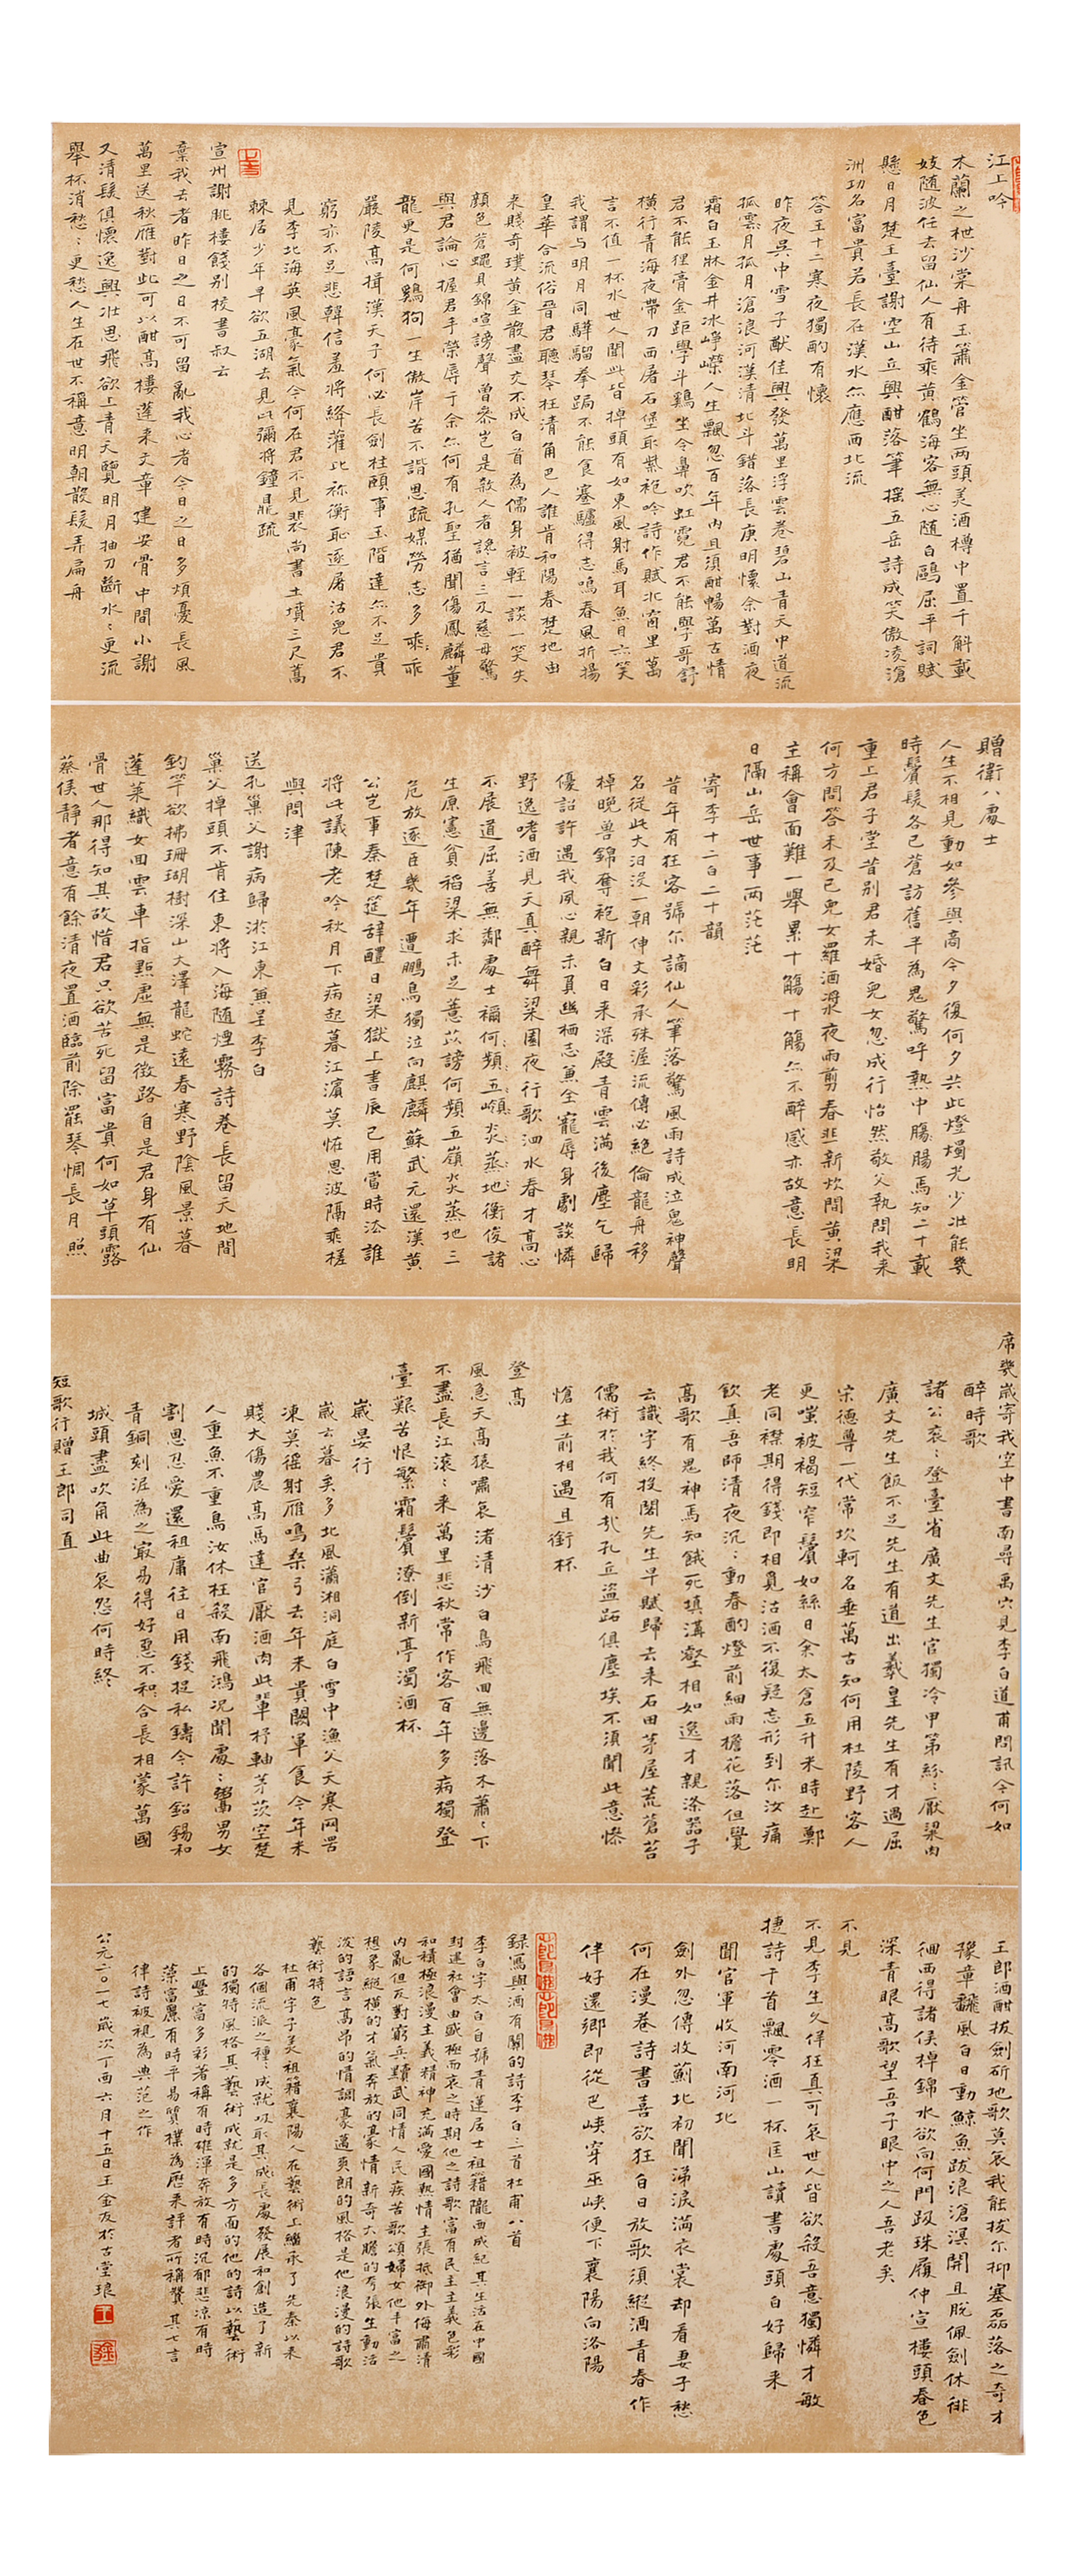 江上吟
木蘭之枻沙棠舟玉簫金管坐兩頭美酒樽中置千斛載
妓随波任去留仙人有待乘黄鶴海客無心随白鷗屈平詞賦
懸日月楚王臺謝空山丘興酣落筆摇五岳詩成笑傲凌滄
洲功名富貴若長在漢水亦應西北流
答王十二寒夜獨酌有懷
昨夜吳中雪子猷佳興發萬里浮雲卷碧山青天中道流
孤雲月孤月滄浪河漢清北斗錯落長庚明懷余對酒夜
霜白玉牀金井冰崢嶸人生飄忽百年内且須酣暢萬古情
君不能狸膏金距學斗鷄坐令鼻吹虹霓君不能學哥舒
橫行青海夜帶刀西屠石堡取紫袍吟詩作賦北窗里萬
言不值一杯水世人聞此皆掉頭有如東風射馬耳魚目亦笑
我謂与明月同驊騮拳跼不能食蹇驢得志鳴春風折揚
皇華合流俗晉君聽琴枉清角巴人誰肯和陽春楚地由
来賤奇璞黄金散盡交不成白首為儒身被輕一談一笑失
顔色蒼蠅貝錦喧謗聲曾參豈是殺人者讒言三及慈母驚
與君論心握君手榮辱于余亦何有孔聖猶聞傷鳳麟董
龍更是何鷄狗一生傲岸苦不諧恩疏媒勞志多乖乖
嚴陵高揖漢天子何必長劍柱頤事玉階達亦不足貴
窮亦不足悲韓信羞將絳灌比祢衡恥逐屠沽兒君不
見李北海英風豪氣今何在君不見裴尚書土墳三尺蒿
棘居少年早欲五湖去見此彌將鐘鼎疏
宣州謝朓樓餞别校書叔云
棄我去者昨日之日不可留亂我心者今日之日多煩憂長風
萬里送秋雁對此可以酣高樓蓬来文章建安骨中間小謝
又清髮俱懷逸興壯思飛欲上青天覽明月抽刀斷水:更流
舉杯消愁:更愁人生在世不稱意明朝散髮弄扁舟
贈衛八處士
人生不相見動如參與商今夕復何夕共此燈燭光少壯能幾
時鬢髮各已蒼訪舊半為鬼驚呼熱中腸腸焉知二十載
重上君子堂昔别君未婚兒女忽成行怡然敬父執問我来
何方問答未及已兒女羅酒漿夜雨剪春韭新炊間黄梁
主稱會面難一舉累十觴十觴亦不醉感亦故意長明
日隔山岳世事兩茫茫
寄李十二白二十韻
昔年有狂客號尔謫仙人筆落驚風雨詩成泣鬼神聲
名從此大汩没一朝伸文彩承殊渥流傳必絕倫龍舟移
棹晚兽錦奪袍新白日来深殿青雲滿後塵乞歸
優詔許遇我夙心親未負幽栖志兼全寵辱身劇談憐
野逸嗜酒見天真醉舞梁園夜行歌泗水春才高心
不展道屈善無鄰處士禰何頻五嶺炎蒸地衡俊諸
生原憲貧稻梁求未足薏苡謗何頻五嶺炎蒸地三
危放逐臣幾年遭鵬鳥獨泣向麒麟蘇武元還漢黄
公豈事秦楚筵辞醴日梁獄上書辰已用當時法誰
將此議陳老吟秋月下病起暮江濱莫怪恩波隔乘槎
與問津
送孔巢父謝病歸游江東兼呈李白
巢父掉頭不肯住東將入海随煙霧詩卷長留天地間
釣竿欲拂珊瑚樹深山大澤龍蛇遠春寒野陰風景暮
蓬萊織女回雲車指點虛無是徵路自是君身有仙
骨世人那得知其故惜君只欲苦死留富貴何如草頭露
蔡侯静者意有餘清夜置酒臨前除罷琴惆長月照
席幾歲寄我空中書南尋禹穴見李白道甫問訊今何如
醉時歌
諸公衮:登臺省廣文先生官獨冷甲第紛:厭梁肉
廣文先生飯不足先生有道出羲皇先生有才過屈
宋德尊一代常坎軻名垂萬古知何用杜陵野客人
更嗤被褐短窄鬢如絲日余太倉五升米時赴鄭
老同襟期得錢即相覓沽酒不復疑忘形到尔汝痛
飲真吾師清夜沉:動春酌燈前細雨檐花落但覺
高歌有鬼神焉知餓死填溝壑相如逸才親滌器子
云識字終投閣先生早賦歸去来石田茅屋荒蒼苔
儒術於我何有哉孔丘盗跖俱塵埃不須聞此意慘
愴生前相遇且銜杯
登高
風急天高猿嘯哀渚清沙白鳥飛回無邊落木蕭:下
不盡長江滚:来萬里悲秋常作客百年多病獨登
臺艱苦恨繁霜鬢潦倒新亭濁酒杯
歲晏行
歲云暮矣多北風瀟湘洞庭白雪中漁父天寒网罟
凍莫徭射雁鳴桑弓去年米貴闕軍食今年米
賤大傷農高馬達官厭酒肉此輩杼軸茅茨空楚
人重魚不重鳥汝休枉殺南飛鴻况聞處:鬻男女
割恩忍愛還租庸往日用錢捉私鑄今許鉛錫和
青銅刻泥為之最易得好惡不和合長相蒙萬國
城頭盡吹角此曲哀怨何時終
短歌行贈王郎司直
王郎酒酣拔劍斫地歌莫哀我能拔尔抑塞磊落之奇才
豫章翻風白日動鯨魚跋浪滄溟開且脫佩劍休徘
徊西得諸侯棹錦水欲向何門趿珠履仲宣樓頭春色
深青眼高歌望吾子眼中之人吾老矣
不見
不見李生久佯狂真可哀世人皆欲殺吾意獨憐才敏
捷詩千首飄零酒一杯匡山讀書處頭白好歸来
聞官軍收河南河北
劍外忽傳收薊北初聞涕淚滿衣裳却看妻子愁
何在漫卷詩書喜欲狂白日放歌須縱酒青春作
伴好還鄉即從巴峽穿巫峽便下襄陽向洛陽
録寫與酒有關的詩李白三首杜甫八首
李白字太白自號青蓮居士祖籍隴西成紀其生活在中國
封建社會由盛極而衰之時期他之詩歌富有民主主義色彩
和積極浪漫主義精神充滿愛國熱情主張抵御外侮肅清
内亂但反對窮兵黷武同情人民疾苦歌頌婦女他丰富之
想象縱横的才氣奔放的豪情新奇大膽的夸張生動活
潑的語言高昂的情調豪邁爽朗的風格是他浪漫的詩歌
藝術特色
杜甫字子美祖籍襄陽人在藝術上繼承了先秦以来
各個流派之種:成就吸取其成長處發展和創造了新
的獨特風格其藝術成就是多方面的他的詩以藝術
上豐富多彩著稱有時雄渾奔放有時沉郁悲涼有時
藻富麗有時平易質樸為歷来評者所稱贊其七言
律詩被視為典范之作
公元二〇一七歲次丁酉六月十五日王金友於古堂琅